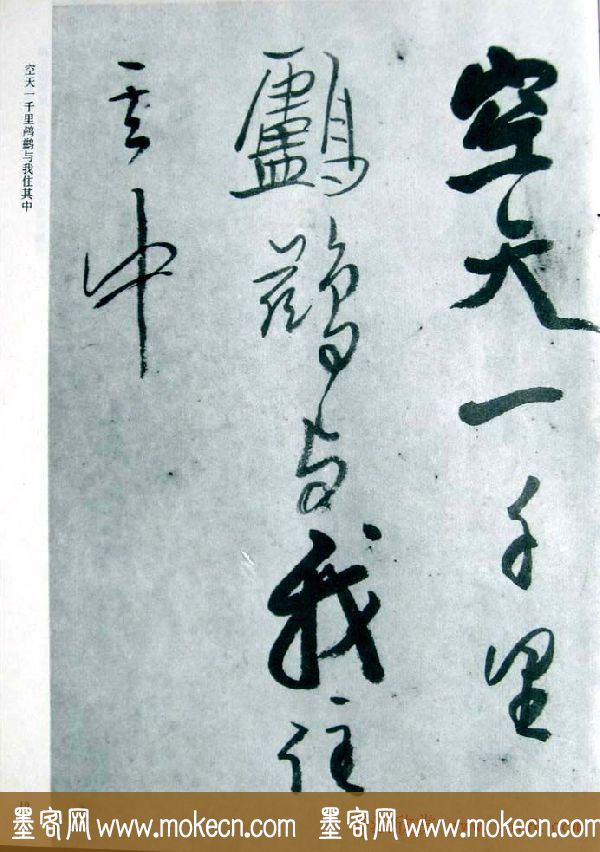 空天一千里
鸕鷀与我住
其中
空天一千里鸬鹚与我住其中
墨客网 www.mokecn.com 墨客网 www.mokecn.com